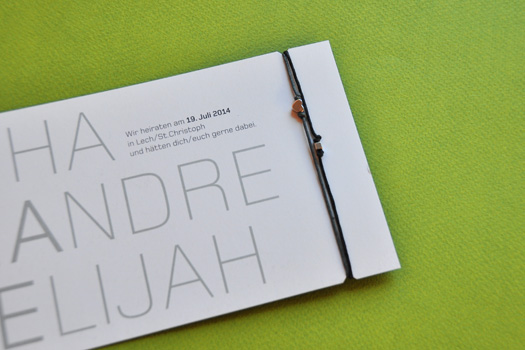 HA
Wir heiraten am 19. Juli 2014
in Lech/St.Christoph
und hätten dich/euch gerne dabei.
ANDRE
ELIJAH